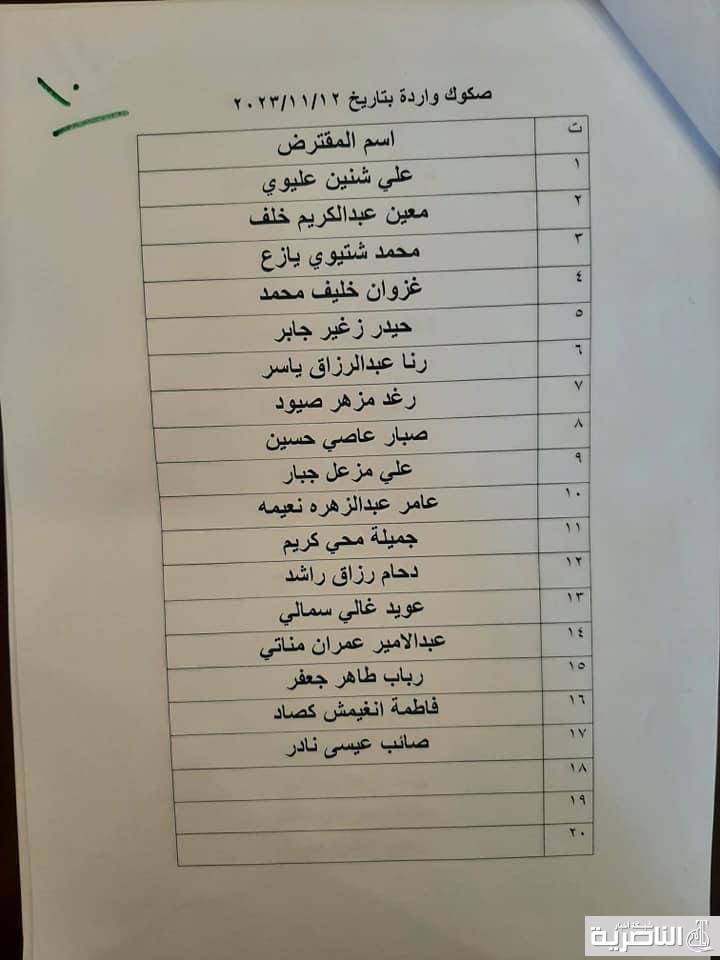 ١٠
صكوك واردة بتاريخ ٢٠٢٣/١١/١٢
ت اسم المقترض
١ علي شنين عليوي
٢ معين عبدالكريم خلف
٣ محمد شتيوي يازع
٤ غزوان خليف محمد
٥ حيدر زغير جابر
٦ رنا عبدالرزاق ياسر
٧ رغد مزهر صيود
٨ صبار عاصي حسين
٩ علي مزعل جبار
١٠ عامر عبدالزهره نعيمه
١١ جميلة محي كريم
١٢ دحام رزاق راشد
١٣ عويد غالي سمالي
١٤ عبدالامير عمران مناتي
١٥ رباب طاهر جعفر
١٦ فاطمة انغيمش كصاد
١٧ صائب عيسى نادر
١٨
١٩
٢٠
شبكة اخبار
الناصرية